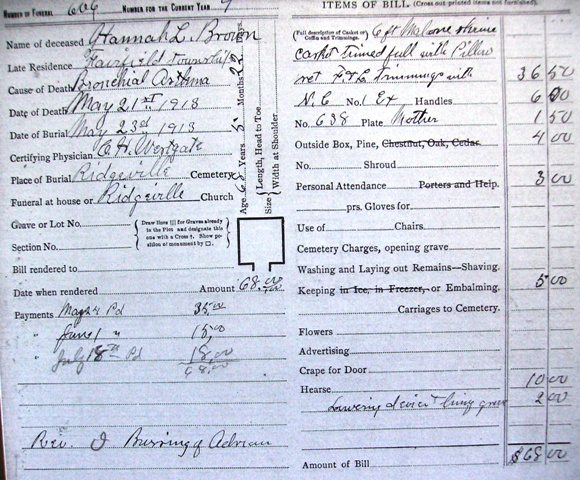 NUMBER OF FUNERAL 606 NUMBER FOR THE CURRENT YEAR
Name of deceased Hannah L. Brown
Late Residence Fairfield Township
Cause of Death Bronchial Asthma
Date of Death May 21st 1913
Date of Burial May 23rd 1913
Certifying Physician C. H. Westgate
Place of Burial Ridgeville Cemetery
Funeral at house or Ridgeville Church
Age Years 5 Months Days
Size { Length, Head to Toe
Width at Shoulder
Grave or Lot No.
Section No.
{ Draw lines ||| for Graves already in the Plot and designate this one with a Cross †. Show position of monument by □. }
Bill rendered to
Date when rendered Amount 68.00
Payments May 24 Pd 35.00
" June 1 " 15.00
" July 18th Pd 18.00
68.00
Rev. I Burring of Adrian
ITEMS OF BILL. (Cross out printed items not furnished.)
(Full description of Casket or Coffin and Trimmings.) 6 ft
casket trimed full with Pillow
Trimmings with 36 50
N. C No. 1 Ex Handles 6 00
No. 638 Plate Mother 1 50
Outside Box, Pine, Chestnut, Oak, Cedar. 4 00
No. Shroud
Personal Attendance Porters and Help. 3 00
prs. Gloves for
Use of Chairs.
Cemetery Charges, opening grave
Washing and Laying out Remains—Shaving.
Keeping in Ice, in Freezer, or Embalming. 5 00
Carriages to Cemetery.
Flowers
Advertising
Crape for Door
Hearse 10 00
Lowering device & lining grave 2 00
Amount of Bill $68 00